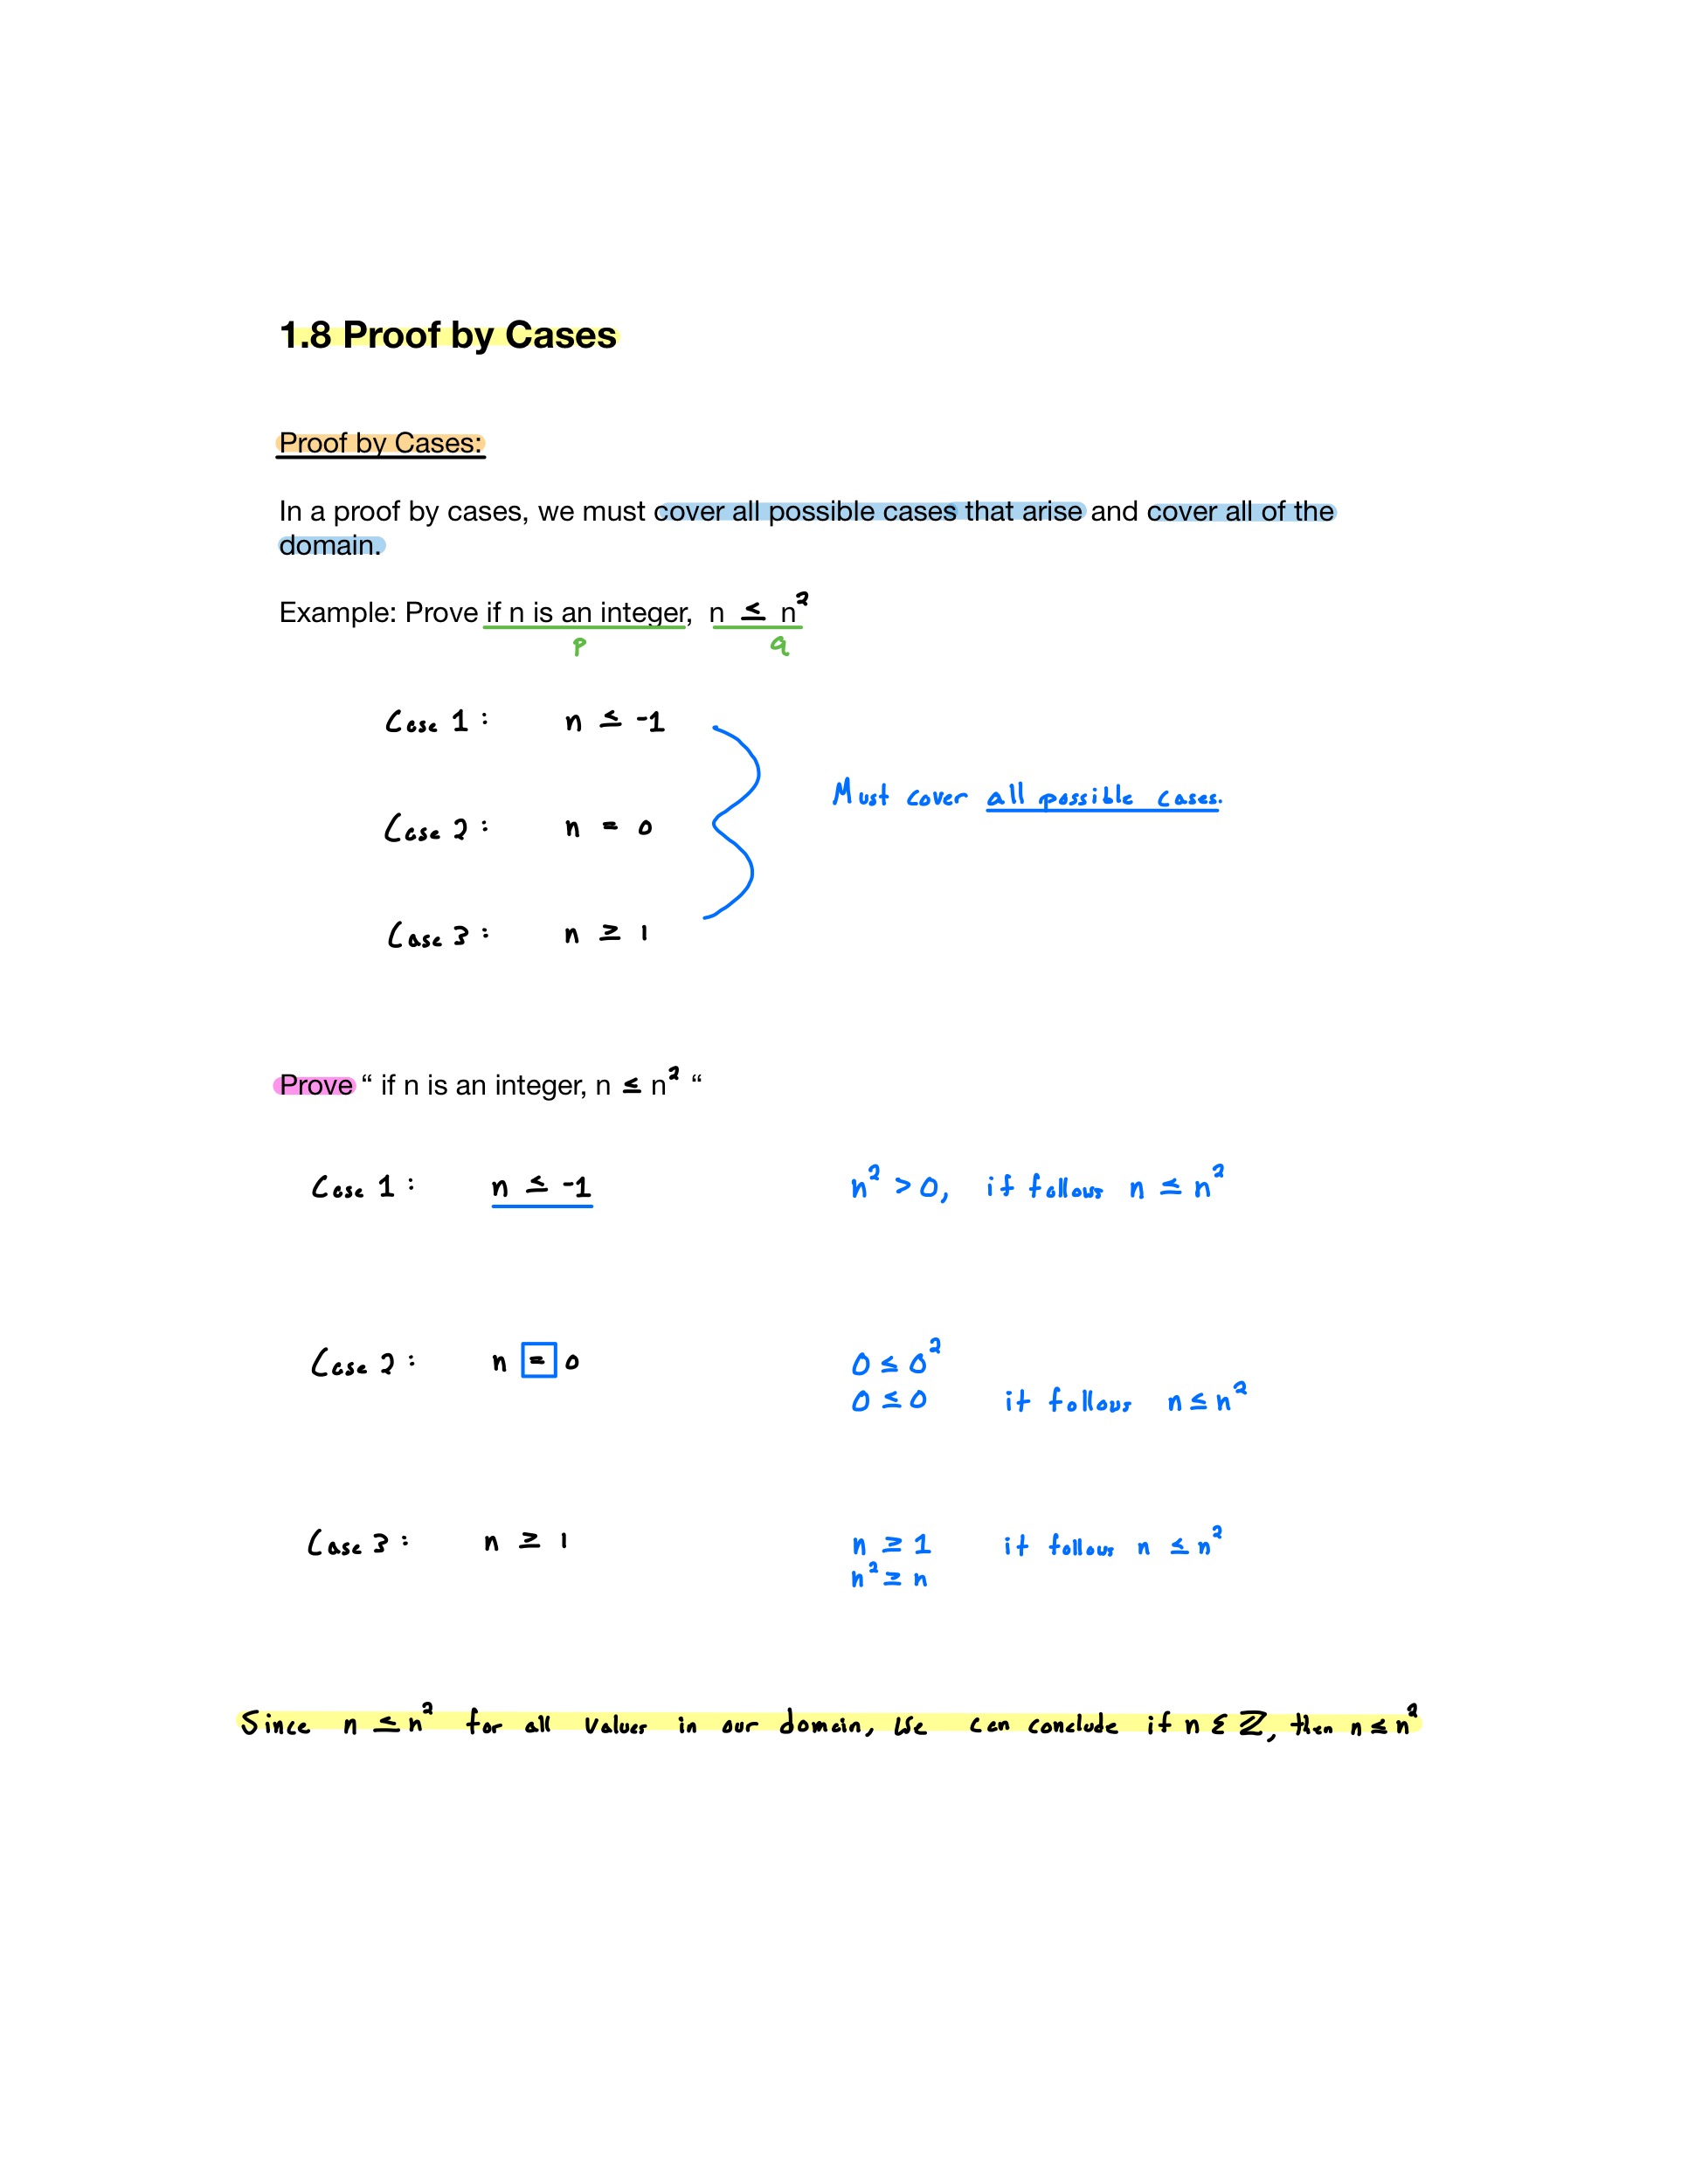 1.8 Proof by Cases
Proof by Cases:
In a proof by cases, we must cover all possible cases that arise and cover all of the
domain.
Example: Prove if n is an integer, n ≤ n²
p q
Case 1: n ≤ -1
Must cover all possible cases.
Case 2: n = 0
Case 3: n ≥ 1
Prove “ if n is an integer, n ≤ n² “
Case 1: n ≤ -1 n² > 0, it follows n ≤ n²
Case 2: n = 0 0 ≤ 0²
0 ≤ 0 it follows n ≤ n²
Case 3: n ≥ 1 n ≥ 1 it follows n ≤ n²
n² ≥ n
Since n ≤ n² for all values in our domain, we can conclude if n ∈ ℤ, then n ≤ n²